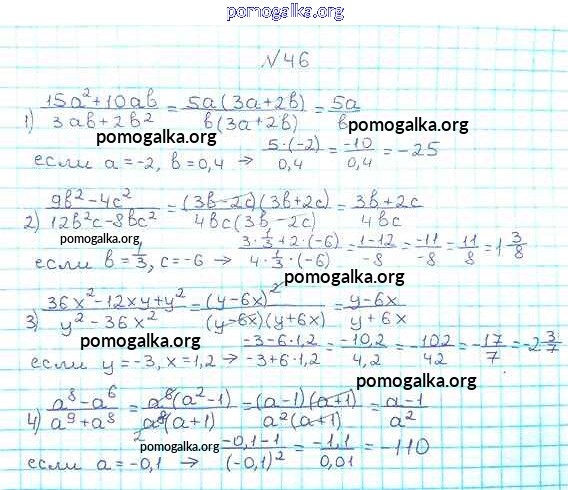 pomogalka.org
№46
1) (15a²+10ab)/(3ab+2b²) = (5a(3a+2b))/(b(3a+2b)) = 5a/b
pomogalka.org pomogalka.org
если a=-2, b=0,4 → (5·(-2))/0,4 = -10/0,4 = -25
2) (9b²-4c²)/(12b²c-8bc²) = ((3b-2c)(3b+2c))/(4bc(3b-2c)) = (3b+2c)/(4bc)
pomogalka.org
если b=1/3, c=-6 → (3·1/3+2·(-6))/(4·1/3·(-6)) = (1-12)/(-8) = (-11)/(-8) = 11/8 = 1 3/8
pomogalka.org
3) (36x²-12xy+y²)/(y²-36x²) = (y-6x)²/((y-6x)(y+6x)) = (y-6x)/(y+6x)
pomogalka.org pomogalka.org
если y=-3, x=1,2 → (-3-6·1,2)/(-3+6·1,2) = (-10,2)/(4,2) = -102/42 = -17/7 = -2 3/7
pomogalka.org
4) (a⁸-a⁶)/(a⁹+a⁸) = (a⁶(a²-1))/(a⁸(a+1)) = ((a-1)(a+1))/(a²(a+1)) = (a-1)/a²
2 pomogalka.org
если a=-0,1 → (-0,1-1)/(-0,1)² = (-1,1)/(0,01) = -110